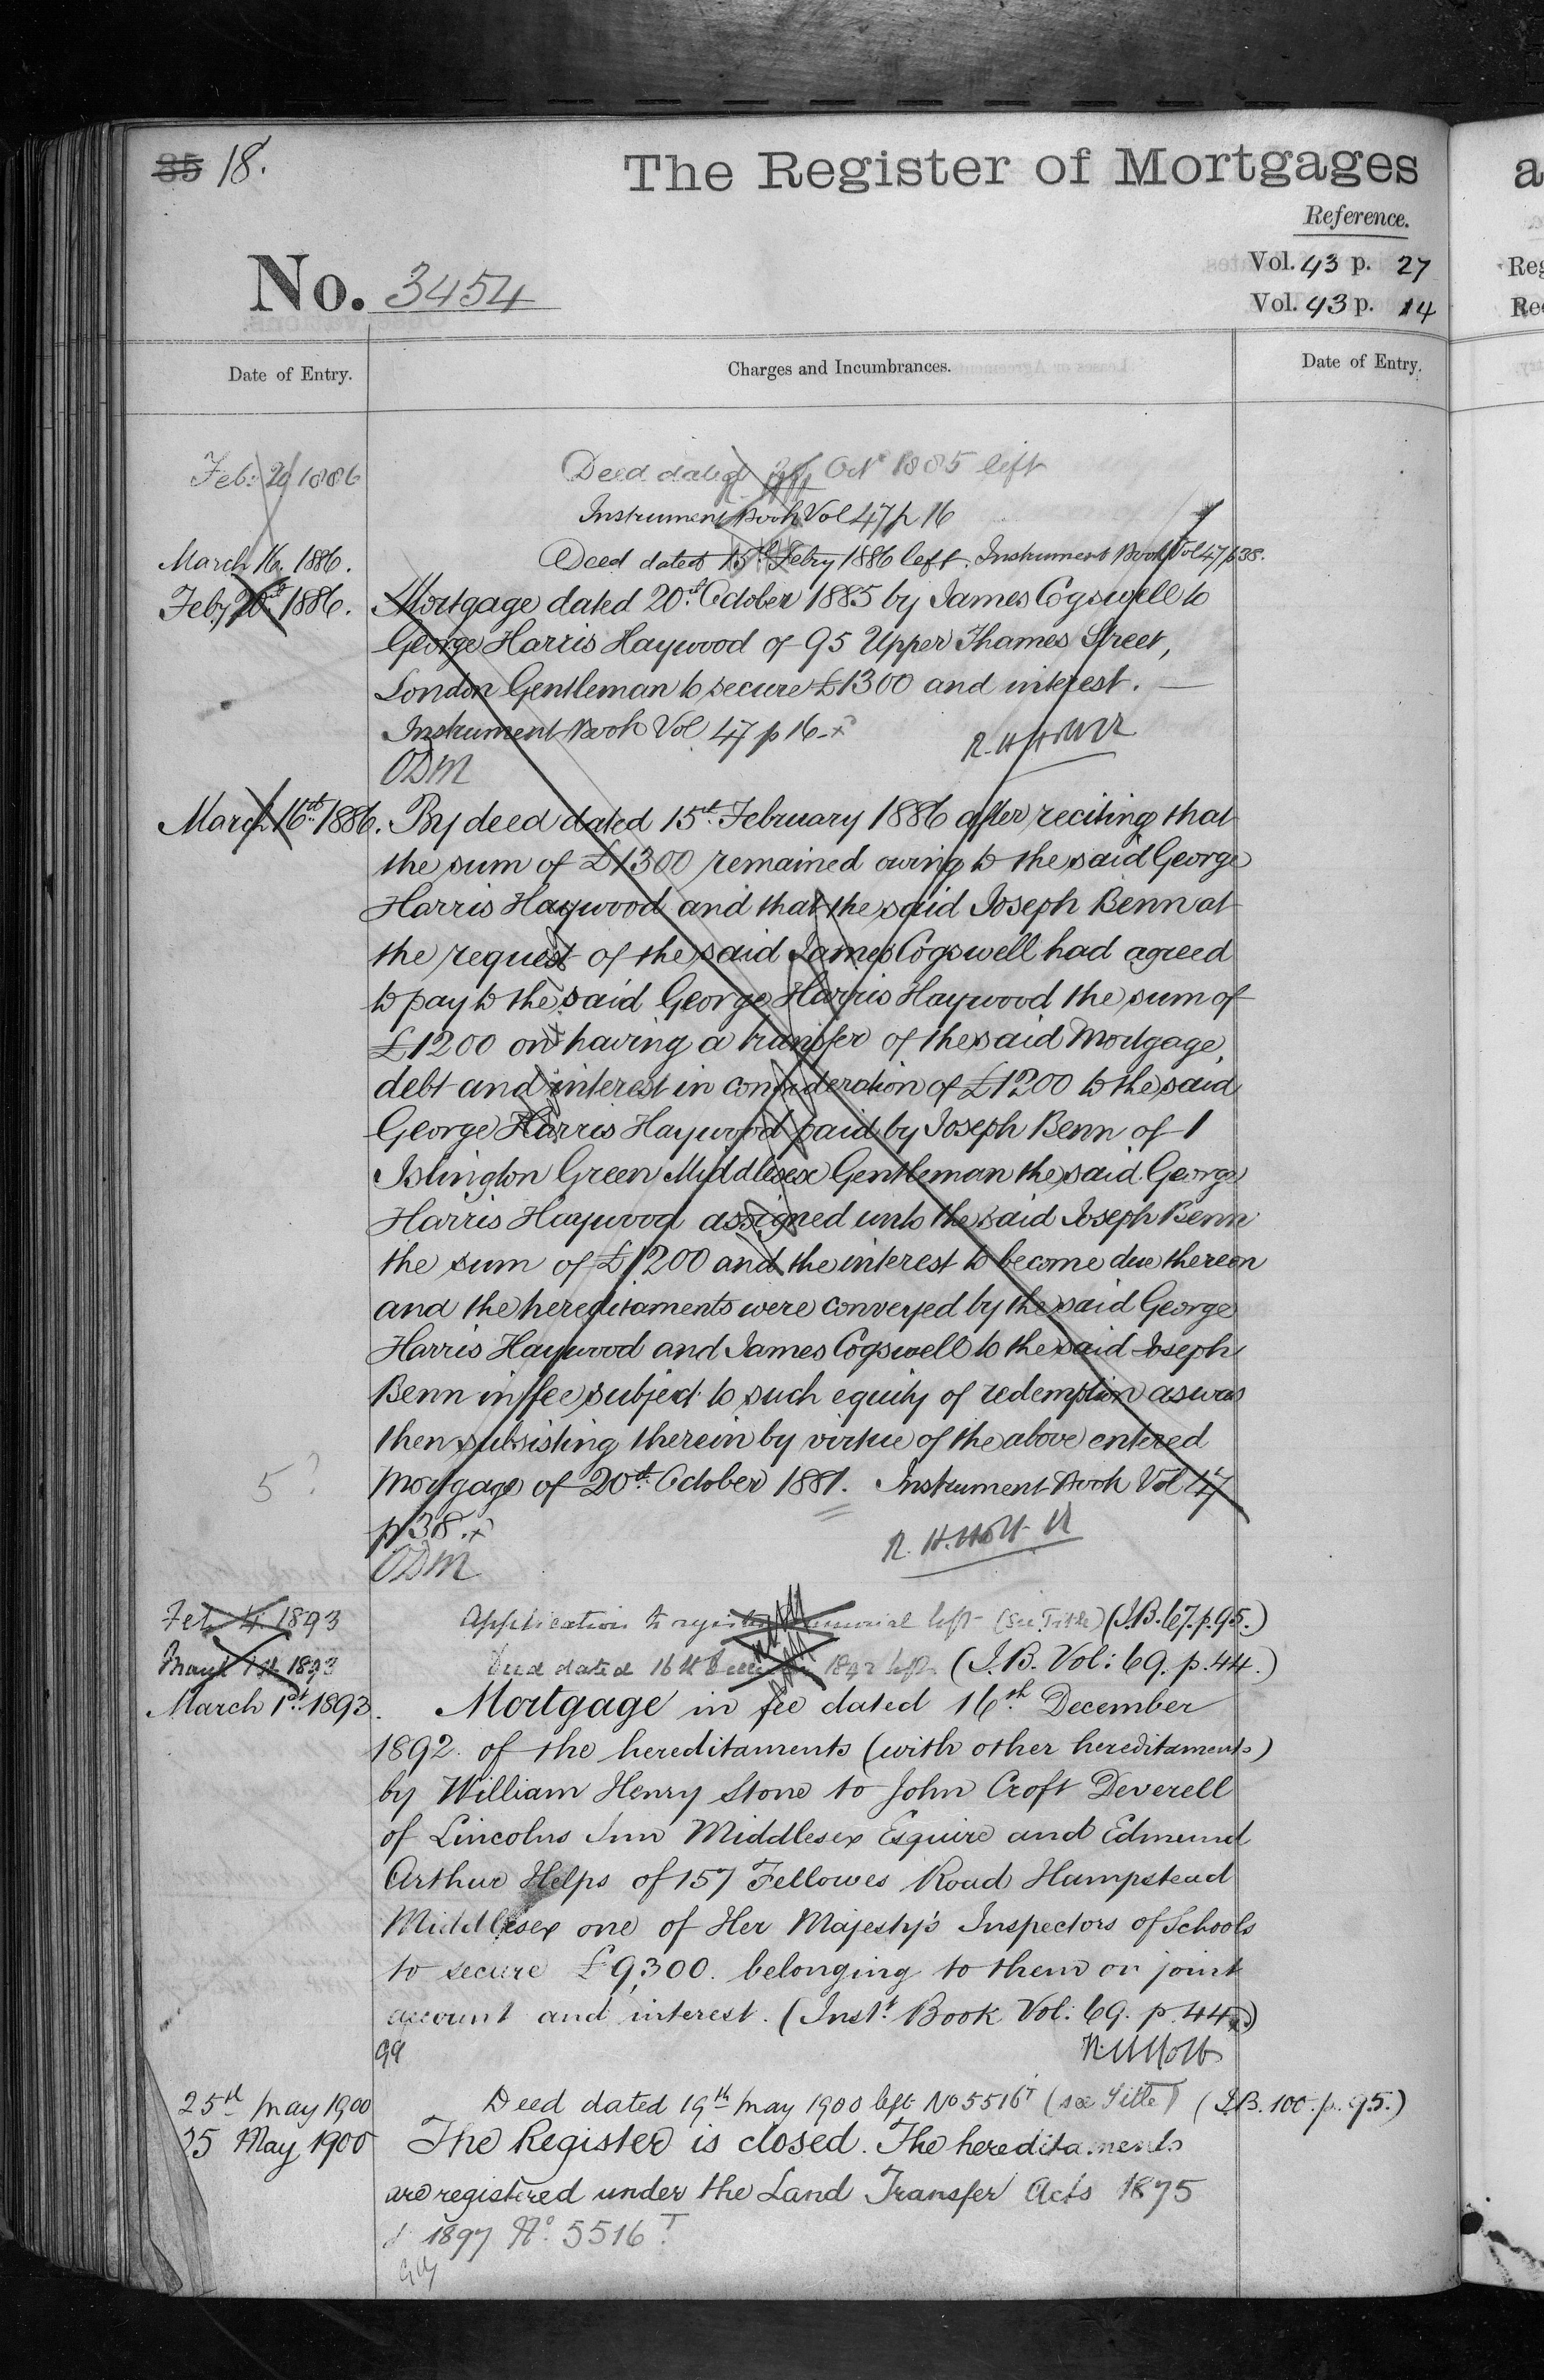 35 18.
The Register of Mortgages
Reference.
No. 3454
Vol. 43 p. 27
Vol. 43 p. 14
Date of Entry.
Charges and Incumbrances.
Date of Entry.
Feb: 20 1886
Deed dated Octr 1885 left
Instrument Book Vol 47 p 16
March 16. 1886.
Deed dated 15th Febry 1886 left. Instrument Book Vol 47 p 38.
Feby 20th 1886.
Mortgage dated 20th October 1885 by James Cogswell to
George Harris Haywood of 95 Upper Thames Street,
London Gentleman to secure £1300 and interest.
Instrument Book Vol 47 p 16
R. H. Holt
ODM
March 16th 1886.
By deed dated 15th February 1886 after reciting that
the sum of £1300 remained owing to the said George
Harris Haywood and that the said Joseph Benn at
the request of the said James Cogswell had agreed
to pay to the said George Harris Haywood the sum of
£1200 on having a transfer of the said Mortgage,
debt and interest in consideration of £1200 to the said
George Harris Haywood paid by Joseph Benn of 1
Islington Green Middlesex Gentleman the said George
Harris Haywood assigned unto the said Joseph Benn
the sum of £1200 and the interest to become due thereon
and the hereditaments were conveyed by the said George
Harris Haywood and James Cogswell to the said Joseph
Benn in fee subject to such equity of redemption as was
then subsisting therein by virtue of the above entered
5?
Mortgage of 20th October 1881. Instrument Book Vol 47
p 38.
R. H. Holt
ODM
Feb. 4. 1893
Application to register memorial left (See Title) (I.B. 67. p. 95.)
March 1st 1893
Deed dated 16th December 1892 left. (I.B. Vol: 69. p. 44.)
March 1st 1893.
Mortgage in fee dated 16th December
1892. of the hereditaments (with other hereditaments)
by William Henry Stone to John Croft Deverell
of Lincolns Inn Middlesex Esquire and Edmund
Arthur Helps of 157 Fellowes Road Hampstead
Middlesex one of Her Majesty's Inspectors of Schools
to secure £9,300. belonging to them on joint
account and interest. (Inst. Book Vol: 69. p. 44)
R. H. Holt
25th May 1900
Deed dated 19th May 1900 left No 5516T (see Title) (I.B. 100. p. 95.)
25 May 1900
The Register is closed. The hereditaments
are registered under the Land Transfer Acts 1875
& 1897 No. 5516T.